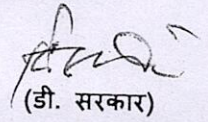 (डी. सरकार)